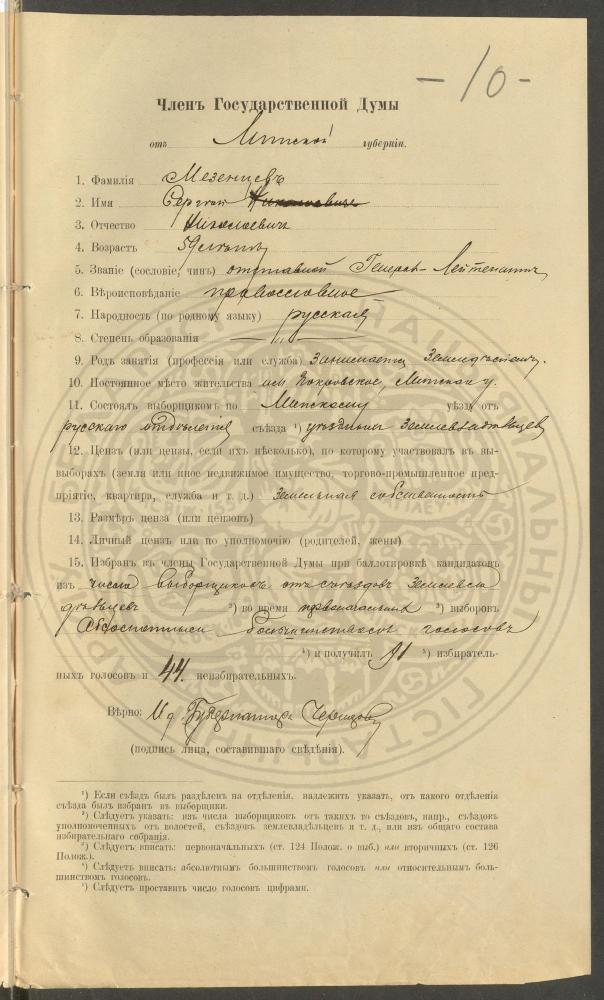 - 10 -
Членъ Государственной Думы
отъ Минской губерніи.
1. Фамилія Мезенцевъ
2. Имя Сергѣй Николаевичъ
3. Отчество Николаевичъ
4. Возрастъ 59
5. Званіе (сословіе, чинъ) отставной Генералъ-Лейтенантъ
6. Вѣроисповѣданіе православное
7. Народность (по родному языку) русская
8. Степень образованія — " —
9. Родъ занятія (профессія или служба) занимается земледѣліемъ.
10. Постоянное мѣсто жительства им. Покровское, Минскаго у.
11. Состоялъ выборщикомъ по Минскому уѣзду отъ
русскаго отдѣленія съѣзда ¹) уѣздныхъ землевладѣльцевъ
12. Цензъ (или цензы, если ихъ нѣсколько), по которому участвовалъ въ вы-
выборахъ (земля или иное недвижимое имущество, торгово-промышленное пред-
пріятіе, квартира, служба и т. д.) земельная собственность
13. Размѣръ ценза (или цензовъ)
14. Личный цензъ или по уполномочію (родителей, жены)
15. Избранъ въ члены Государственной Думы при баллотировкѣ кандидатовъ
изъ числа выборщиковъ отъ съѣздовъ землевла
дѣльцевъ ²) во время первоначальныхъ ³) выборовъ
абсолютнымъ большинствомъ голосовъ
⁴) и получилъ 91 ⁵) избиратель-
ныхъ голосовъ и 44 неизбирательныхъ.
Вѣрно: И д Губернатора
(подпись лица, составившаго свѣдѣнія).
¹) Если съѣздъ былъ раздѣленъ на отдѣленія, надлежитъ указать, отъ какого отдѣленія
съѣзда былъ избранъ въ выборщики.
²) Слѣдуетъ указать: изъ числа выборщиковъ отъ такихъ то съѣздовъ, напр., съѣздовъ
уполномоченныхъ отъ волостей, съѣздовъ землевладѣльцевъ и т. д., или изъ общаго состава
избирательнаго собранія.
³) Слѣдуетъ вписать: первоначальныхъ (ст. 124 Полож. о выб.) или вторичныхъ (ст. 126
Полож.).
⁴) Слѣдуетъ вписать: абсолютнымъ большинствомъ голосовъ или относительнымъ боль-
шинствомъ голосовъ.
⁵) Слѣдуетъ проставить число голосовъ цифрами.